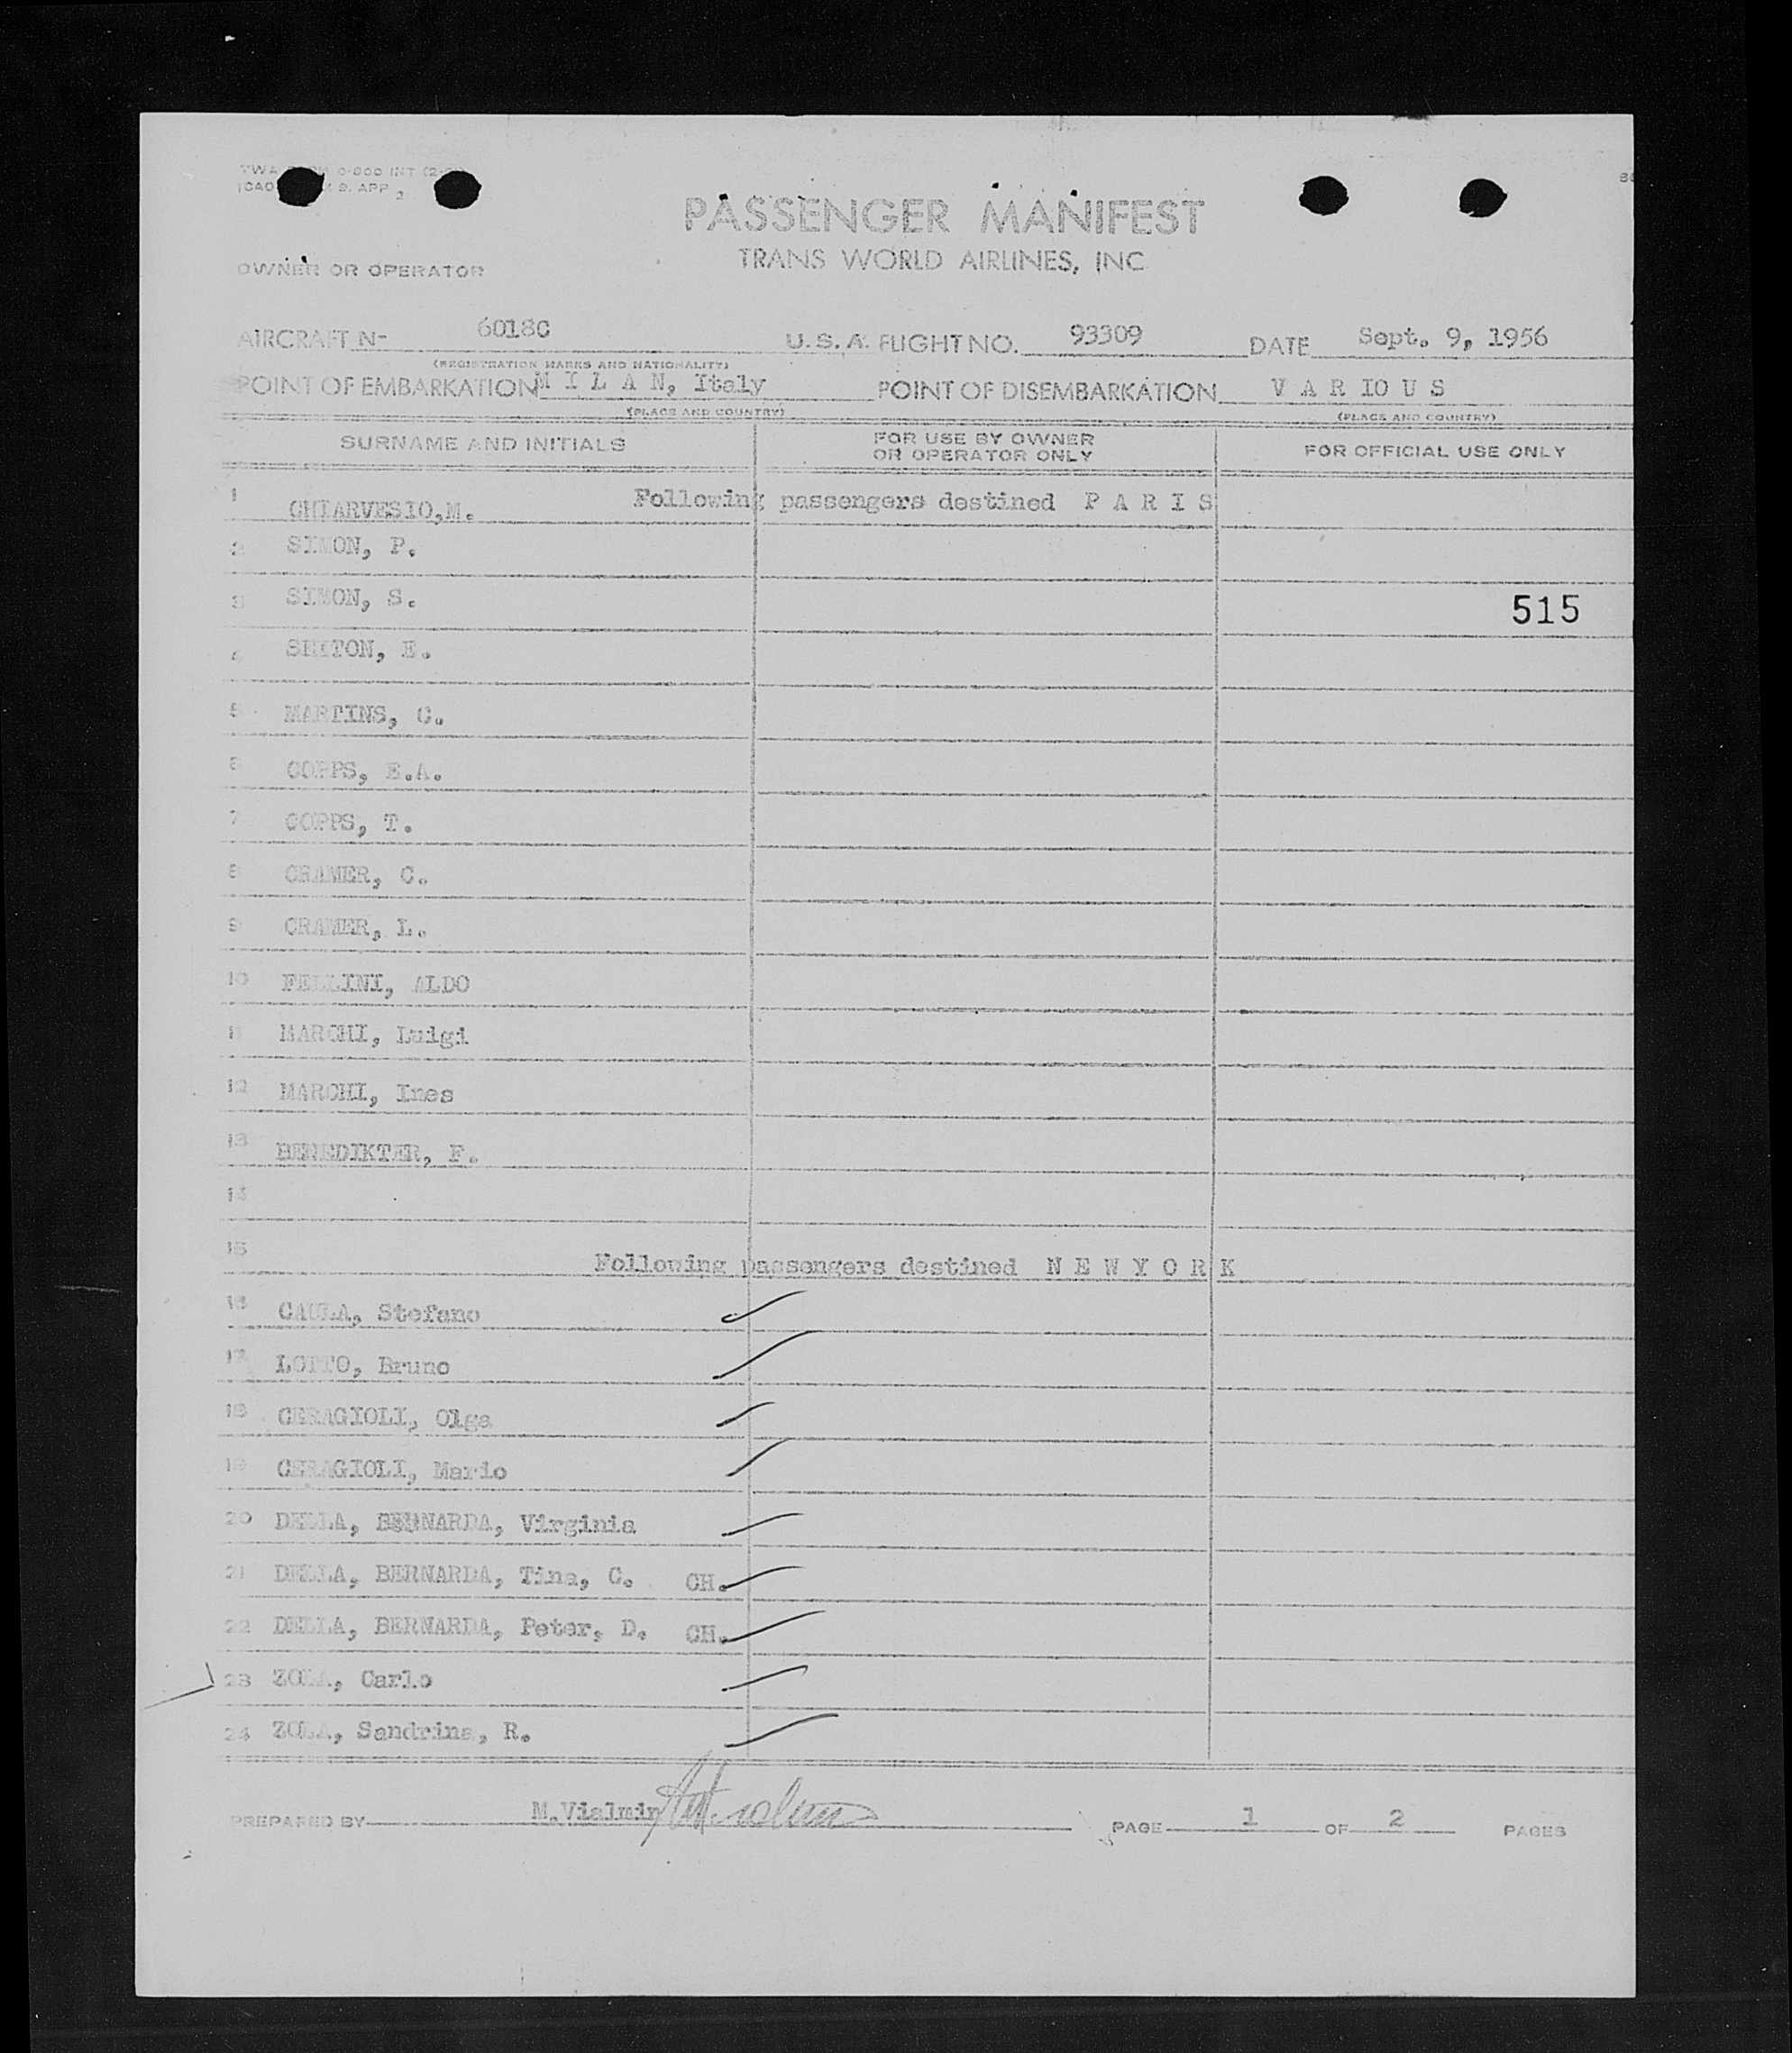 PASSENGER MANIFEST
TRANS WORLD AIRLINES, INC
OWNER OR OPERATOR
AIRCRAFT N- 6018C U.S.A. FLIGHT NO. 93309 DATE Sept. 9, 1956
(REGISTRATION MARKS AND NATIONALITY)
POINT OF EMBARKATION M I L A N, Italy POINT OF DISEMBARKATION V A R IO U S
(PLACE AND COUNTRY) (PLACE AND COUNTRY)
SURNAME AND INITIALS FOR USE BY OWNER OR OPERATOR ONLY FOR OFFICIAL USE ONLY
1 CHIARVESIO,M. Following passengers destined P A R I S
2 SIMON, P.
3 SIMON, S. 515
4 E.
5 MARTINS, C.
6 COPPS, E.A.
7 COPPS, T.
8 CRAMER, C.
9 CRAMER, L.
10 FELLINI, ALDO
11 MARCHI, Luigi
12 MARCHI, Ines
13 BENEDIKTER, F.
14
15 Following passengers destined N E W Y O R K
16 CAULA, Stefano
17 LOTTO, Bruno
18 CERAGIOLI, Olga
19 CERAGIOLI, Mario
20 DELLA, BERNARDA, Virginia
21 DELLA, BERNARDA, Tina, C. CH.
22 DELLA, BERNARDA, Peter, D. CH.
23 ZOLA, Carlo
24 ZOLA, Sandrina, R.
PREPARED BY M.Vialmin PAGE 1 OF 2 PAGES